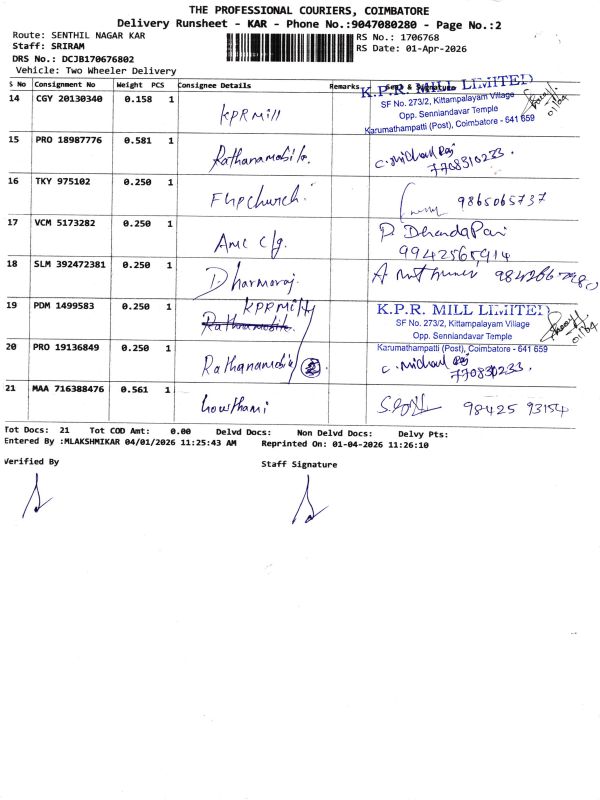 THE PROFESSIONAL COURIERS, COIMBATORE
Delivery Runsheet - KAR - Phone No.:9047080280 - Page No.:2
Route: SENTHIL NAGAR KAR
RS No.: 1706768
Staff: SRIRAM
RS Date: 01-Apr-2026
DRS No.: DCJB170676802
Vehicle: Two Wheeler Delivery
S No Consignment No Weight PCS Consignee Details Remarks Seal & Signature
14 CGY 20130340 0.158 1 KPR Mill
K.P.R. MILL LIMITED
SF No. 273/2, Kittampalayam Village
Opp. Senniandavar Temple
Karumathampatti (Post), Coimbatore - 641 659
01/04
15 PRO 18987776 0.581 1 Rathanamobile. C. Michael Raj
7708310233.
16 TKY 975102 0.250 1 9865065737
17 VCM 5173282 0.250 1 Amc c/g. P. DhandaPani
9942565914
18 SLM 392472381 0.250 1 Dharmaraj.
19 PDM 1499583 0.250 1 KPR Mill
K.P.R. MILL LIMITED
SF No. 273/2, Kittampalayam Village
Opp. Senniandavar Temple
Karumathampatti (Post), Coimbatore - 641 659
01/04
20 PRO 19136849 0.250 1 Rathanamobile 2 C. Michael Raj
21 MAA 716388476 0.561 1 Gowthami 98425 93154
Tot Docs: 21 Tot COD Amt: 0.00 Delvd Docs: Non Delvd Docs: Delvy Pts:
Entered By :MLAKSHMIKAR 04/01/2026 11:25:43 AM Reprinted On: 01-04-2026 11:26:10
Verified By Staff Signature